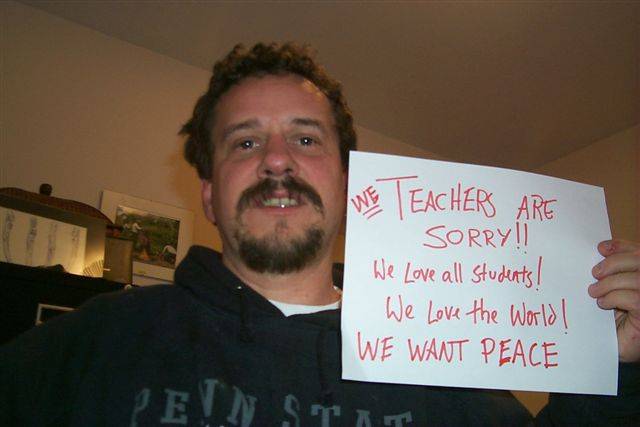 WE TEACHERS ARE
SORRY!!
We Love all students!
We Love the World!
WE WANT PEACE
PENN STAT